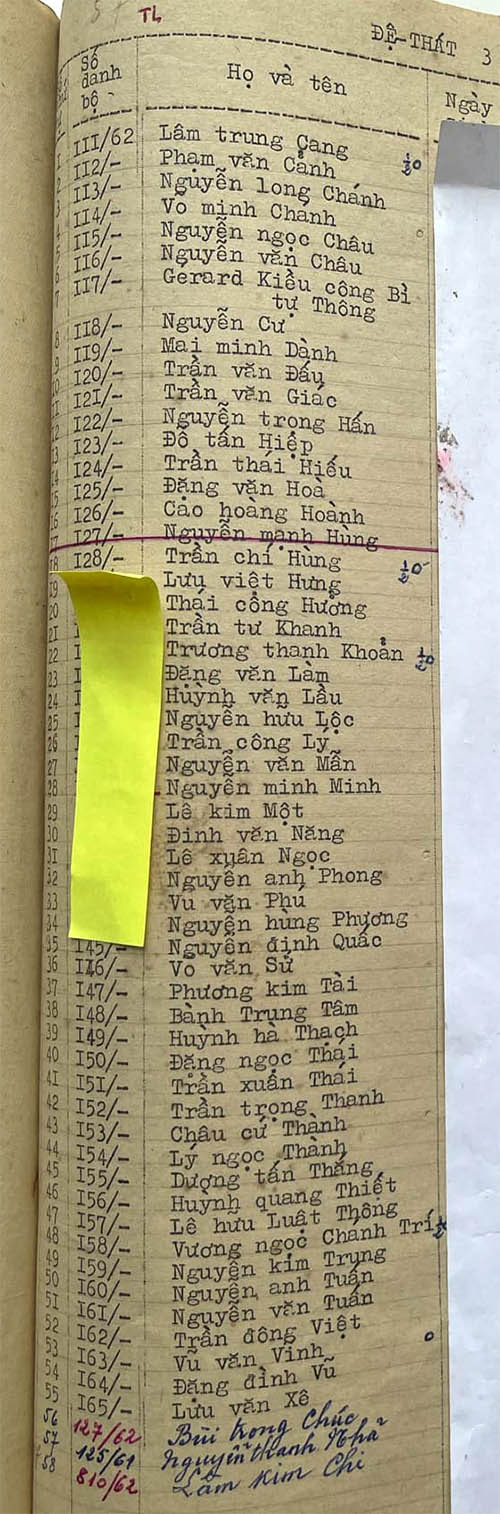 TL
ĐỆ-THẤT 3
Số danh bộ
Họ và tên
Ngày
1 III/62 Lâm trung Cang
2 II2/- Phạm văn Cảnh ½0
3 II3/- Nguyễn long Chánh
4 II4/- Võ minh Chánh
5 II5/- Nguyễn ngọc Châu
6 II6/- Nguyễn văn Châu
7 II7/- Gérard Kiều công Bì
tự Thông
8 II8/- Nguyễn Cư
9 II9/- Mai minh Dành
10 I20/- Trần văn Đấu
11 I2I/- Trần văn Giác
12 I22/- Nguyễn trọng Hấn
13 I23/- Đỗ tấn Hiệp
14 I24/- Trần thái Hiếu
15 I25/- Đặng văn Hoà
16 I26/- Cao hoàng Hoành
17 I27/- Nguyễn mạnh Hùng
18 I28/- Trần chí Hùng ½0
19 Lưu việt Hưng
20 Thái công Hưởng
21 Trần tư Khanh
22 Trương thanh Khoản ½0
23 Đặng văn Lâm
24 Huỳnh văn Lầu
25 Nguyễn hữu Lộc
26 Trần công Lý
27 Nguyễn văn Mẫn
28 Nguyễn minh Minh
29 Lê kim Một
30 Đinh văn Năng
31 Lê xuân Ngọc
32 Nguyễn anh Phong
33 Vũ văn Phú
34 Nguyễn hùng Phương
35 I45/- Nguyễn định Quấc
36 I46/- Võ văn Sử
37 I47/- Phương kim Tài
38 I48/- Bành Trung Tâm
39 I49/- Huỳnh hà Thạch
40 I50/- Đặng ngọc Thái
41 I5I/- Trần xuân Thái
42 I52/- Trần trọng Thanh
43 I53/- Châu cứ Thành
44 I54/- Lý ngọc Thành
45 I55/- Dương tấn Thắng
46 I56/- Huỳnh quang Thiết
47 I57/- Lê hữu Luật Thông
48 I58/- Vương ngọc Chánh Trí
49 I59/- Nguyễn kim Trung
50 I60/- Nguyễn anh Tuấn
51 I6I/- Nguyễn văn Tuấn
52 I62/- Trần đông Việt
53 I63/- Vũ văn Vinh
54 I64/- Đặng đình Vũ
55 I65/- Lưu văn Xê
56 127/62 Bùi trọng Chúc
57 125/61 Nguyễn thanh Nhã
58 810/62 Lâm Kim Chi